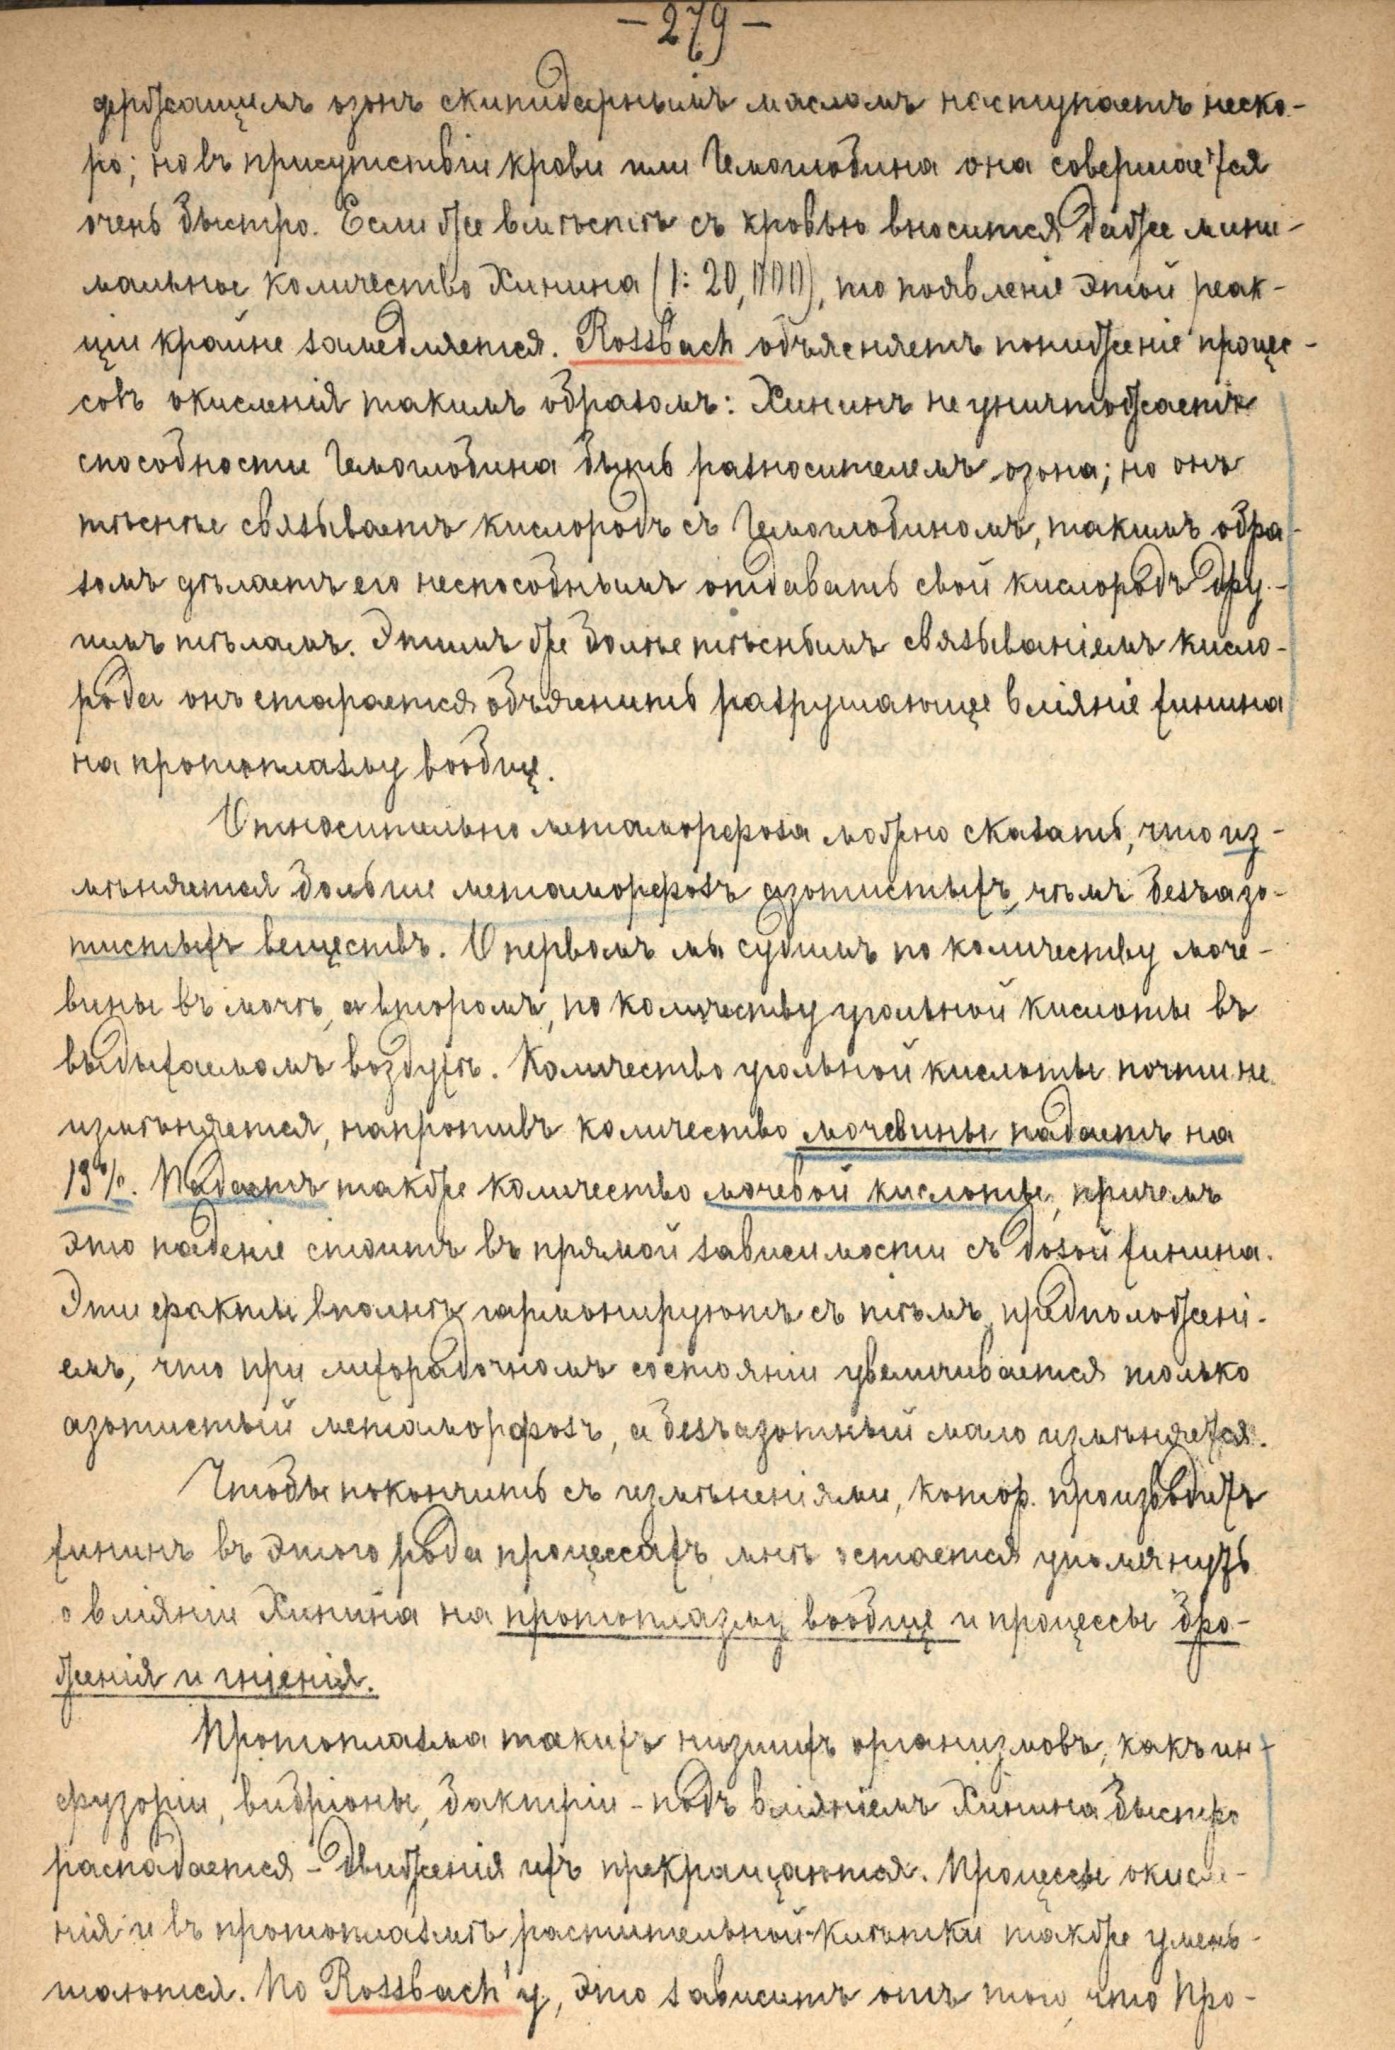 — 279 —
держащимъ озонъ скипидарнымъ масломъ наступаетъ неско-
ро; но въ присутствіи крови или Гемоглобина она совершается
очень быстро. Если же вмѣстѣ съ кровью вносится даже мини-
мальное количество Хинина (1:20,000), то появленіе этой реак-
ціи крайне замедляется. Rossbach объясняетъ пониженіе процес-
совъ окисленія такимъ образомъ: Хининъ не уничтожаетъ
способности Гемоглобина быть разносителемъ озона; но онъ
тѣснѣе связываетъ кислородъ съ Гемоглобиномъ, такимъ обра-
зомъ дѣлаетъ его неспособнымъ отдавать свой кислородъ дру-
гимъ тѣламъ. Этимъ же болѣе тѣснымъ связываніемъ кисло-
рода онъ старается объяснить разрушающее вліяніе хинина
на протоплазму вообще.
Относительно метаморфоза можно сказать, что из-
мѣняется больше метаморфозъ азотистыхъ, чѣмъ безъазо-
тистыхъ веществъ. О первомъ мы судимъ по количеству моче-
вины въ мочѣ, а второмъ, по количеству угольной кислоты въ
выдыхаемомъ воздухѣ. Количество угольной кислоты почти не
измѣняется, напротивъ количество мочевины падаетъ на
19%. Падаетъ также количество мочевой кислоты, причемъ
это паденіе стоитъ въ прямой зависимости съ дозой хинина.
Эти факты вполнѣ гармонируютъ съ тѣмъ предположені-
емъ, что при лихорадочномъ состояніи увеличивается только
азотистый метаморфозъ, а безъазотный мало измѣняется.
Чтобы покончить съ измѣненіями, котор. производитъ
хининъ въ этого рода процессахъ, мнѣ остается упомянуть
о вліяніи Хинина на протоплазму вообще и процессы бро-
женія и гніенія.
Протоплазма такихъ низшихъ организмовъ, какъ ин-
фузоріи, вибріоны, бактріи – подъ вліяніемъ Хинина быстро
распадается – движенія ихъ прекращаются. Процессы окисле-
нія и въ протоплазмѣ растительной клѣтки также умень-
шаются. По Rossbach'у, это зависитъ отъ того, что Про-